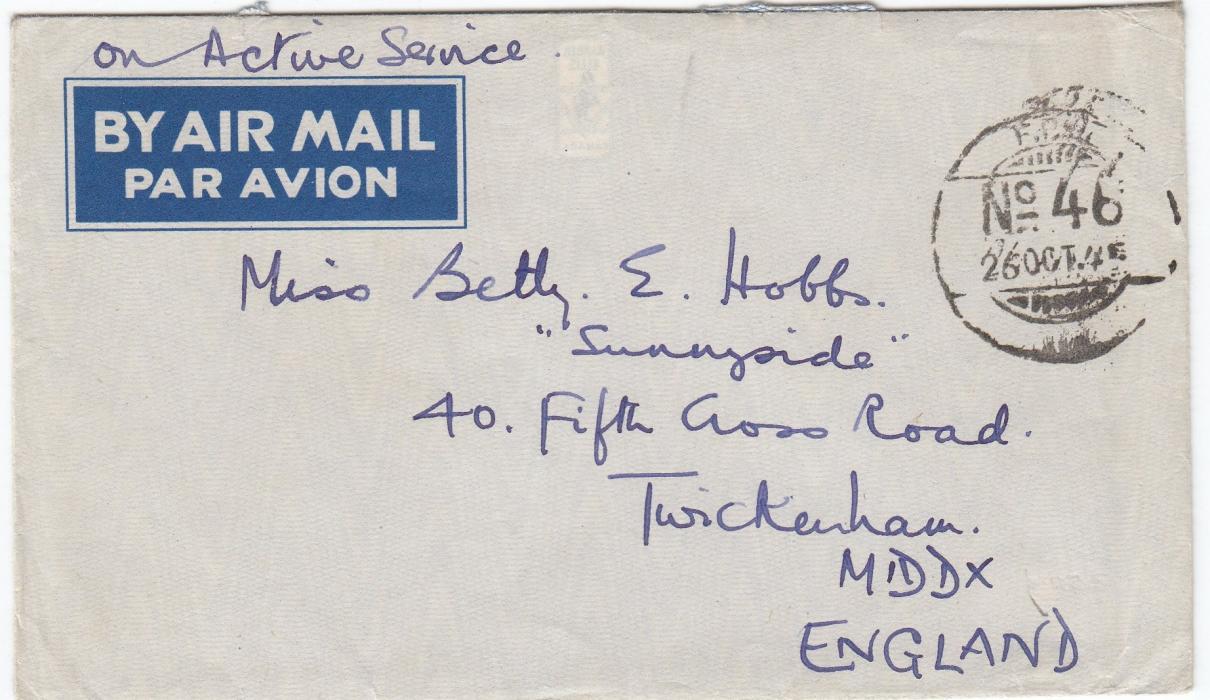 on Active Service.
BY AIR MAIL
PAR AVION
No 46
26 OCT. 45
Miss Betty. E. Hobbs.
"Sunnyside"
40. Fifth Cross Road.
Twickenham.
MIDDX
ENGLAND